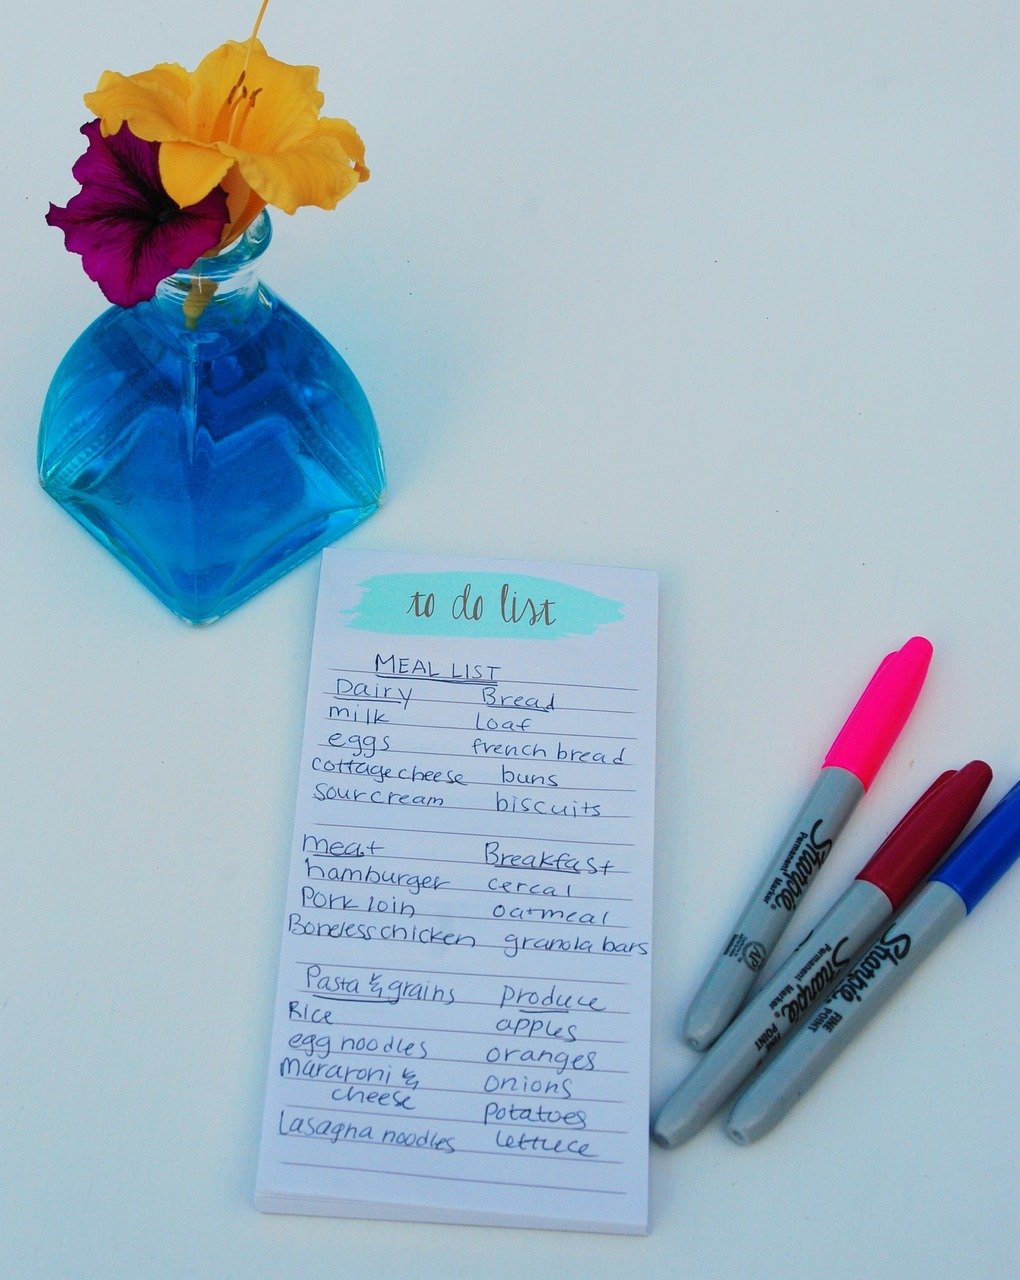 to do list
MEAL LIST
Dairy Bread
milk loaf
eggs french bread
cottage cheese buns
sour cream biscuits
meat Breakfast
hamburger cereal
Pork loin oatmeal
Boneless chicken granola bars
Pasta & grains produce
Rice apples
egg noodles oranges
mararoni & onions
cheese potatoes
Lasagna noodles lettuce
Sharpie
Permanent Marker
AP
Sharpie
Permanent Marker
FINE POINT
Sharpie
FINE POINT